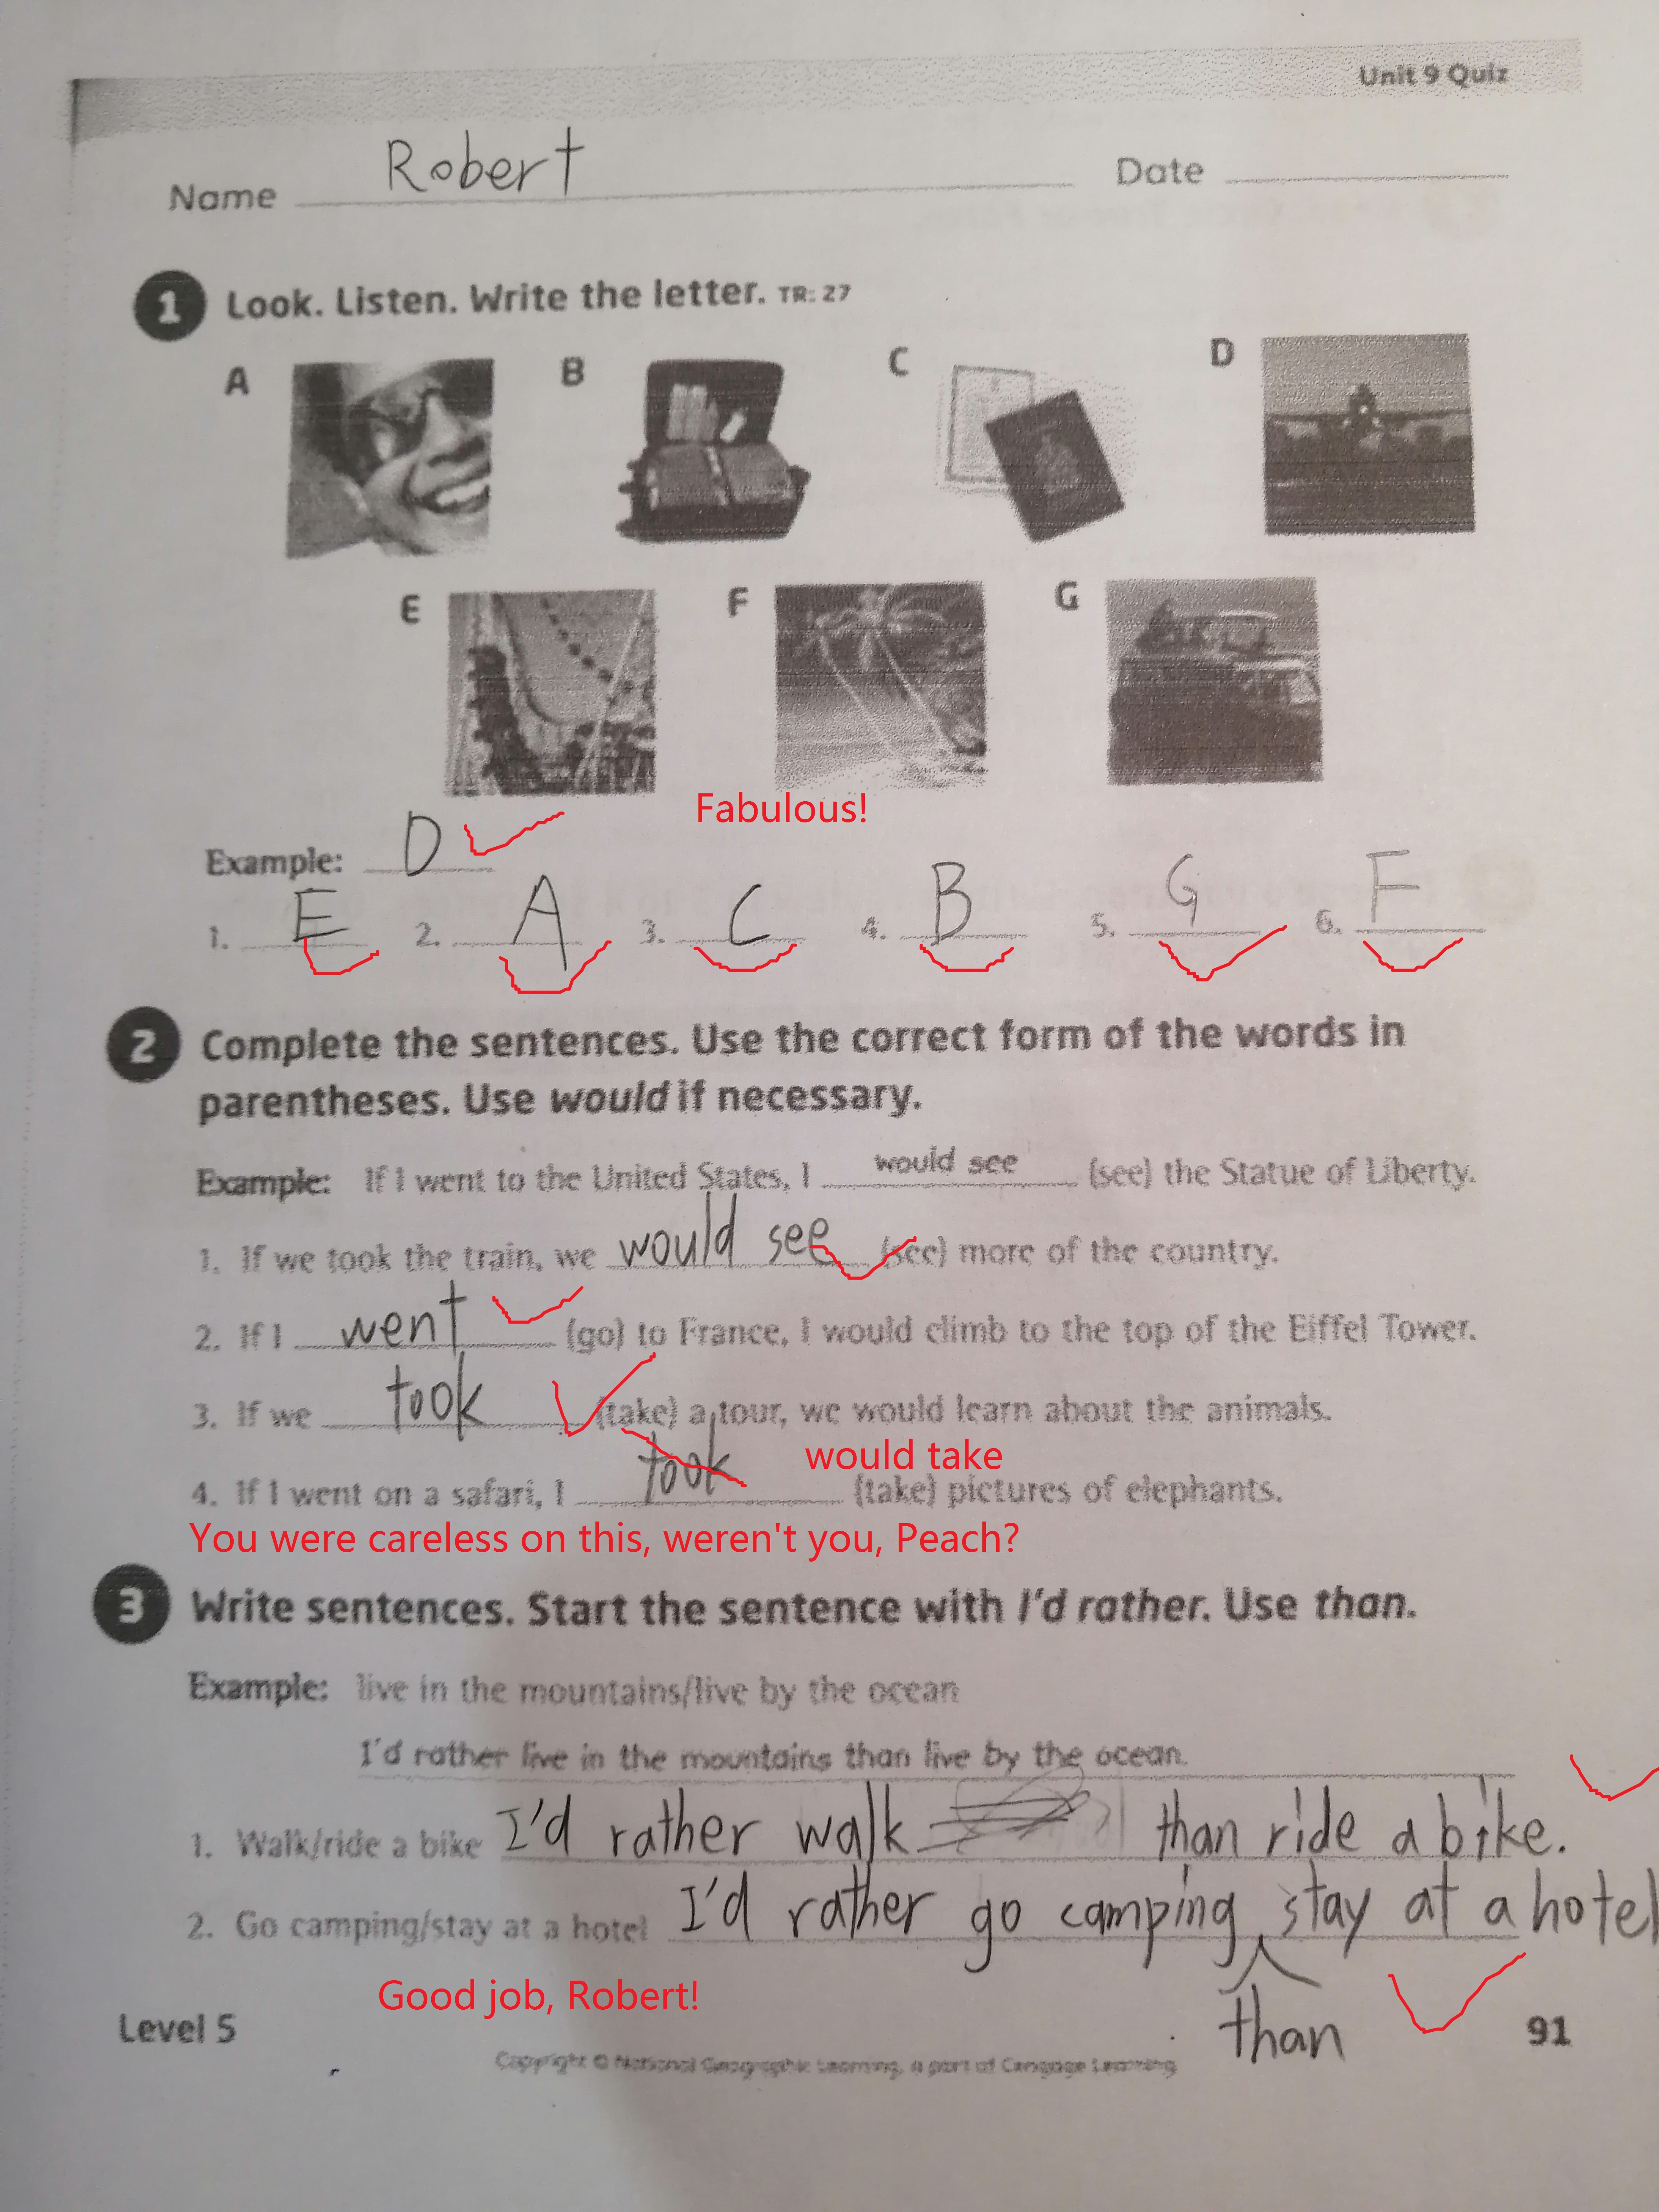 Unit 9 Quiz
Name Robert Date
1 Look. Listen. Write the letter. TR: 27
A B C D
E F G
Fabulous!
Example: D
1. E 2. A 3. C 4. B 5. G 6. F
2 Complete the sentences. Use the correct form of the words in
parentheses. Use would if necessary.
Example: If I went to the United States, I would see (see) the Statue of Liberty.
1. If we took the train, we would see (see) more of the country.
2. If I went (go) to France, I would climb to the top of the Eiffel Tower.
3. If we took (take) a tour, we would learn about the animals.
would take
4. If I went on a safari, I took (take) pictures of elephants.
You were careless on this, weren't you, Peach?
3 Write sentences. Start the sentence with I'd rather. Use than.
Example: live in the mountains/live by the ocean
I'd rather live in the mountains than live by the ocean.
1. Walk/ride a bike I'd rather walk than ride a bike.
2. Go camping/stay at a hotel I'd rather go camping stay at a hotel
than
Good job, Robert!
Level 5 91
Copyright © National Geographic Learning, a part of Cengage Learning